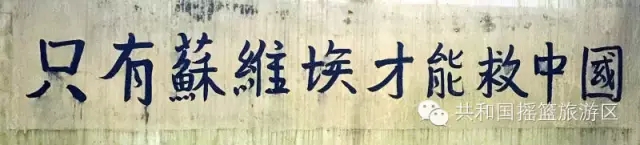 只有蘇維埃才能救中國
共和国摇篮旅游区